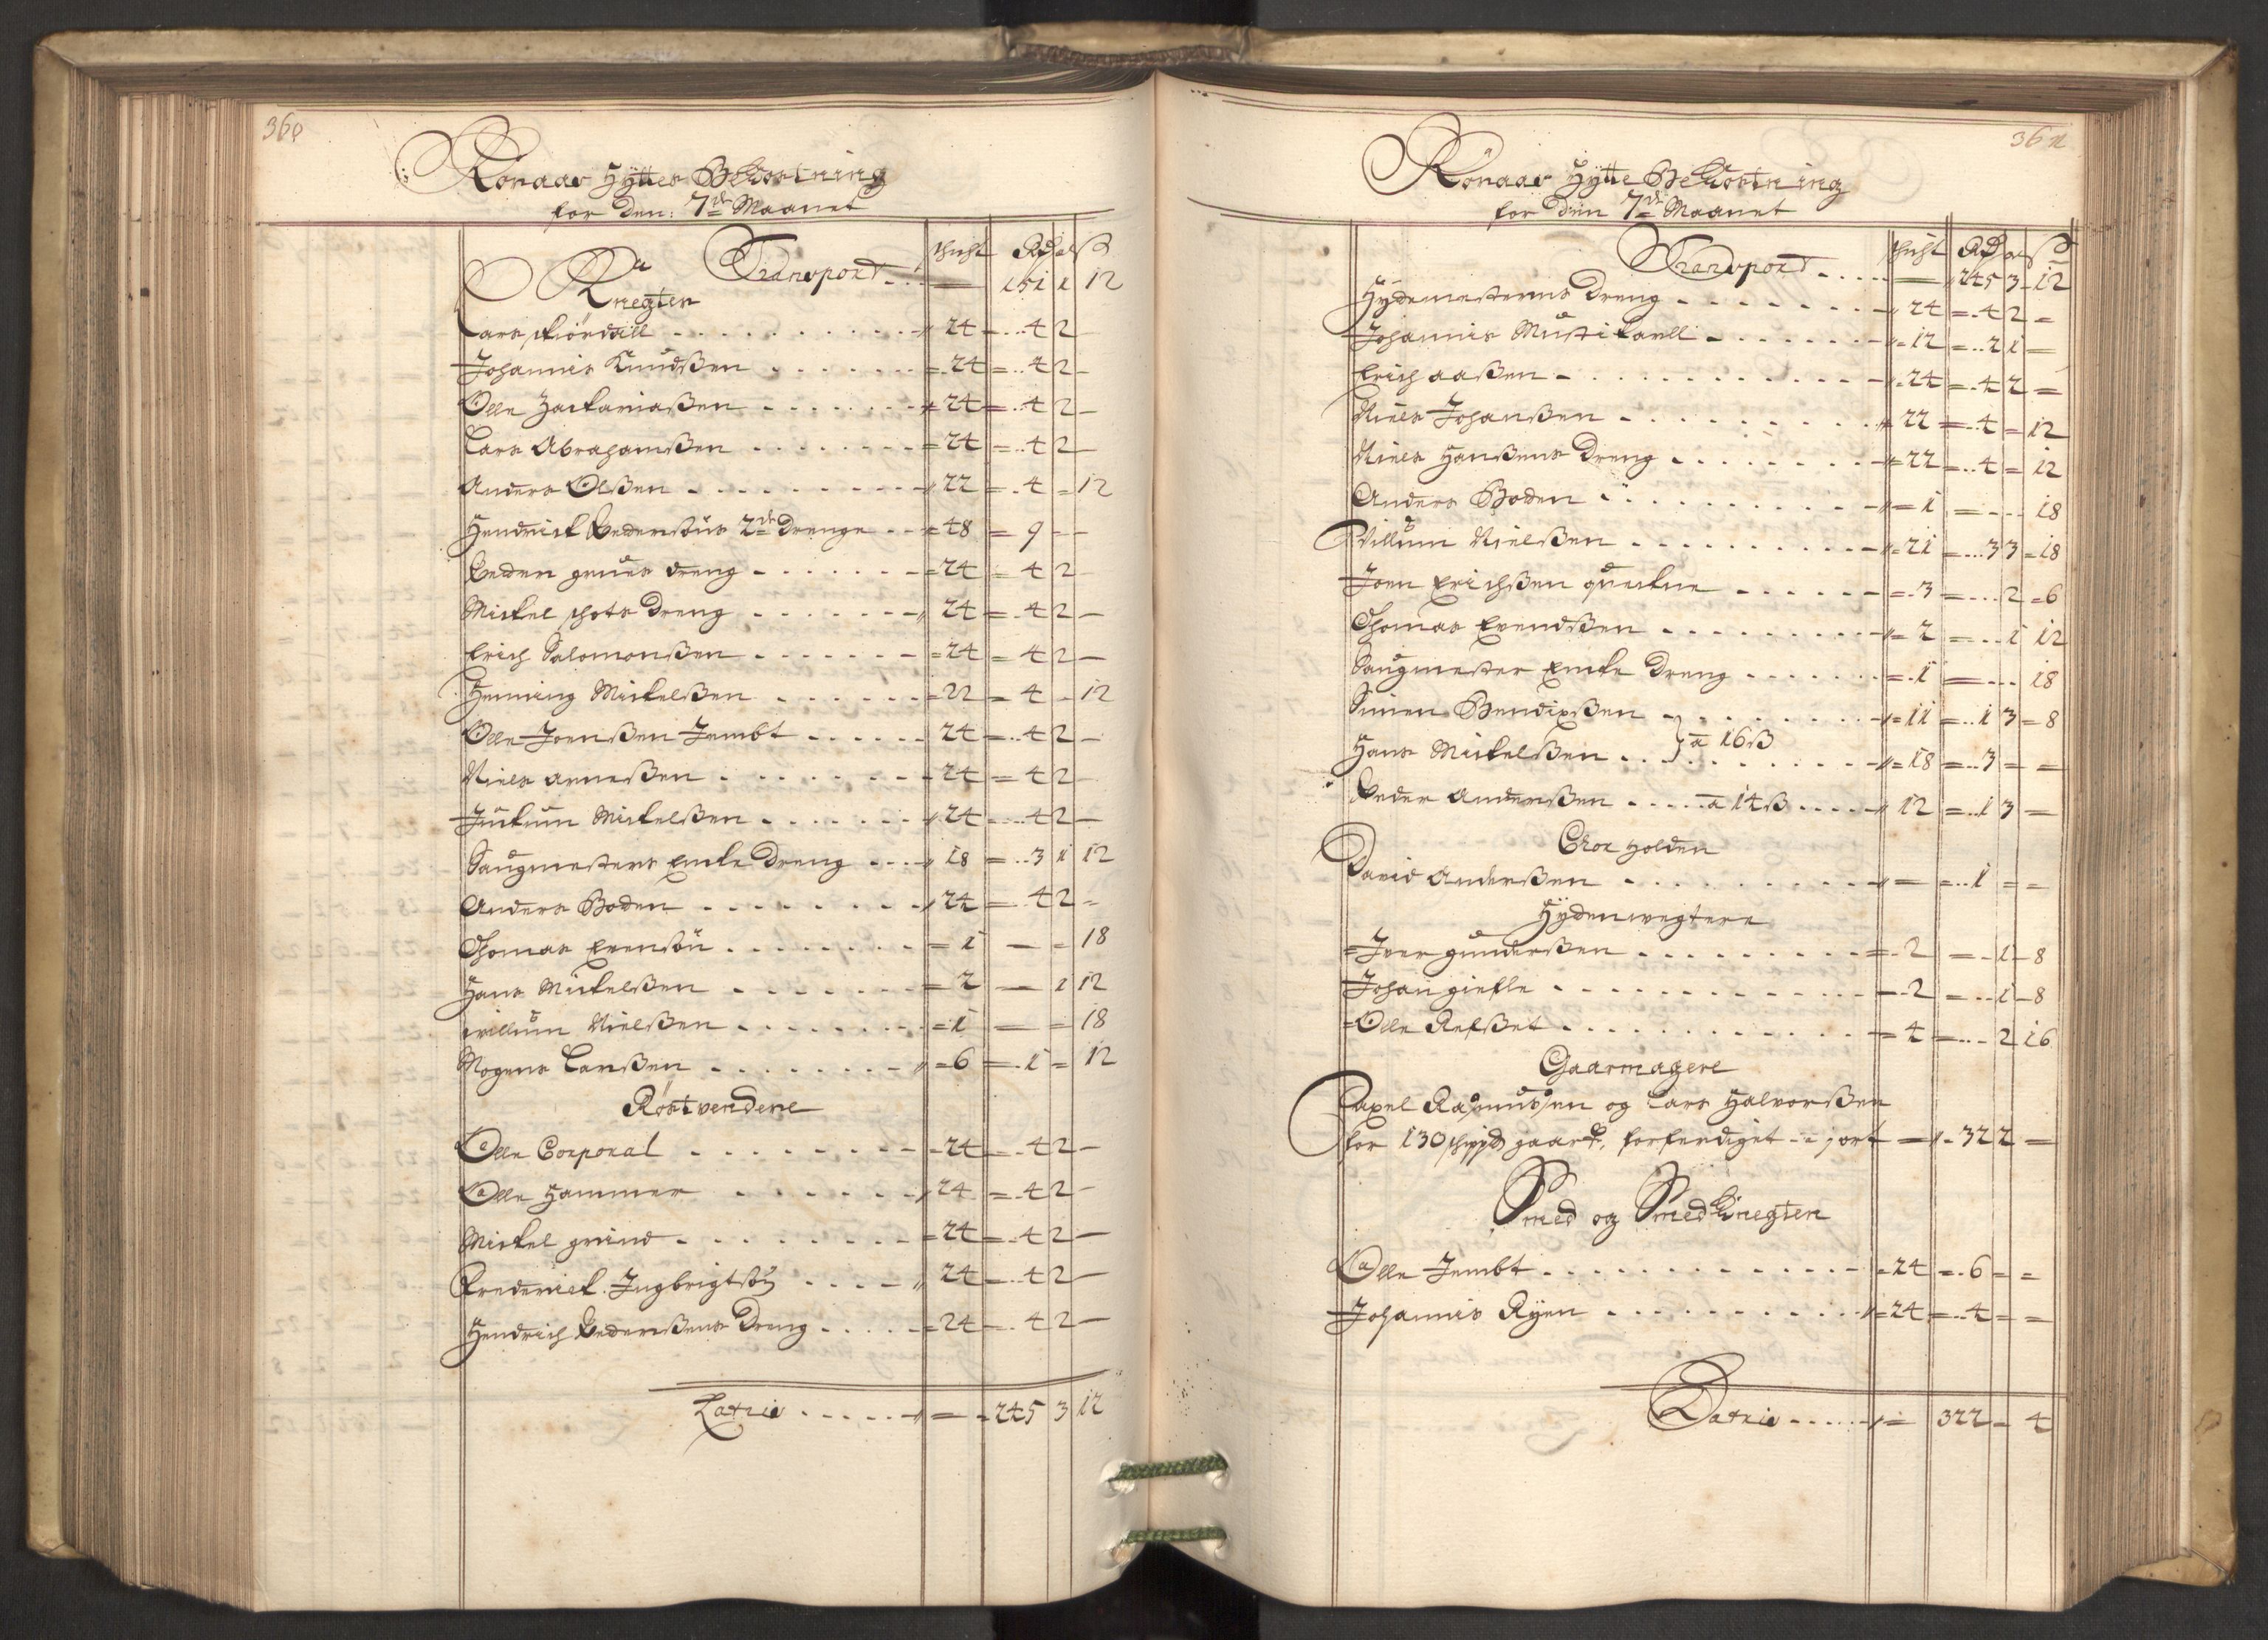 360
Rönaas Hÿttes Bekostning
for Den: 7de Maanet
Transport . . — 151 1 12
Knegter
Lars . . . 24 = 4 2
Johannis Knudßen . . . 24 = 4 2 -
Olle Zackariaßen . . . 24 = 4 2 -
Lars Abrahamßen . . . 24 = 4 2 -
Anders Olßen . . . 22 = 4 = 12
Hendrick Pedersöns 2de Drenge . . 48 = 9 - -
Peder dreng . . . 24 = 4 2
Mickel Dreng . . . 24 = 4 2 -
Erich Salomonßen . . . 24 = 4 2 -
Henning Mickelßen . . . 22 = 4 - 12
Olle Joenßen Jembt . . . 24 = 4 2 -
Niels arneßen . . . 24 = 4 2
Mickelßen . . . 24 - 4 2 -
Saugmesters Dreng . . . 18 = 3 1 12
Anders Boden . . . 24 = 4 2 =
Thomas Evensön . . . 1 — = 18
Hans Mickelßen . . . 2 — 1 12
willum Nielßen . . . 1 — = 18
Mogens Larßen . . . 6 = 1 = 12
Röstvendere
Olle Corporal . . . 24 = 4 2 -
Olle Hammer . . . 24 = 4 2 -
Mickel grund . . . 24 = 4 2 -
Frederick Ingbrigtsön . . . 24 = 4 2 -
Hendrich Pederßens Dreng . . . 24 = 4 2 -
Latris . . . = 245 3 12
Rönaas Hÿtte Bekostning
for Den 7de Maanet
Transport . . . — 245 3 12
Hÿdemesterens Dreng . . . 24 = 4 2 =
Johannis . . . 12 = 2 1 —
Erich aaßen . . . 24 = 4 2 =
Niels Johanßen . . . 22 = 4 = 12
Niels Hanßens Dreng . . . 22 = 4 = 12
Anders Boden . . . 1 = . . 18
Villum Nielßen . . . 21 = 3 3 = 18
Joen Erichßen . . . 3 = . . 2 = 6
Thomas Evendßen . . . 2 = . . 1 12
Saugmester Dreng . . . 1 = . . 18
Simen Bendixßen . . . 11 = 1 3 = 8
Hans Mickelßen . . } a 16ß . . . 18 = 3 = =
Peder Anderßen . . . a 14ß . . . 12 = 1 3 =
holden
David Anderßen . . . = 1 = =
Hÿdenvegtere
Iver gunderßen . . . 2 = . 1 - 8
Johan . . . 2 = . 1 - 8
Olle Refßet . . . 4 = . . 2 16
Gaarmagere
Paxel Rasmussen og Lars Halvorßen
for 130 gaark: forferdiget a 1 ort = 32 2 =
Smed og Smedknegter
Olle Jembt . . . 24 = 6 = =
Johannis Rÿen . . . 24 = 4 = =
Latris . . . = 322 = 4